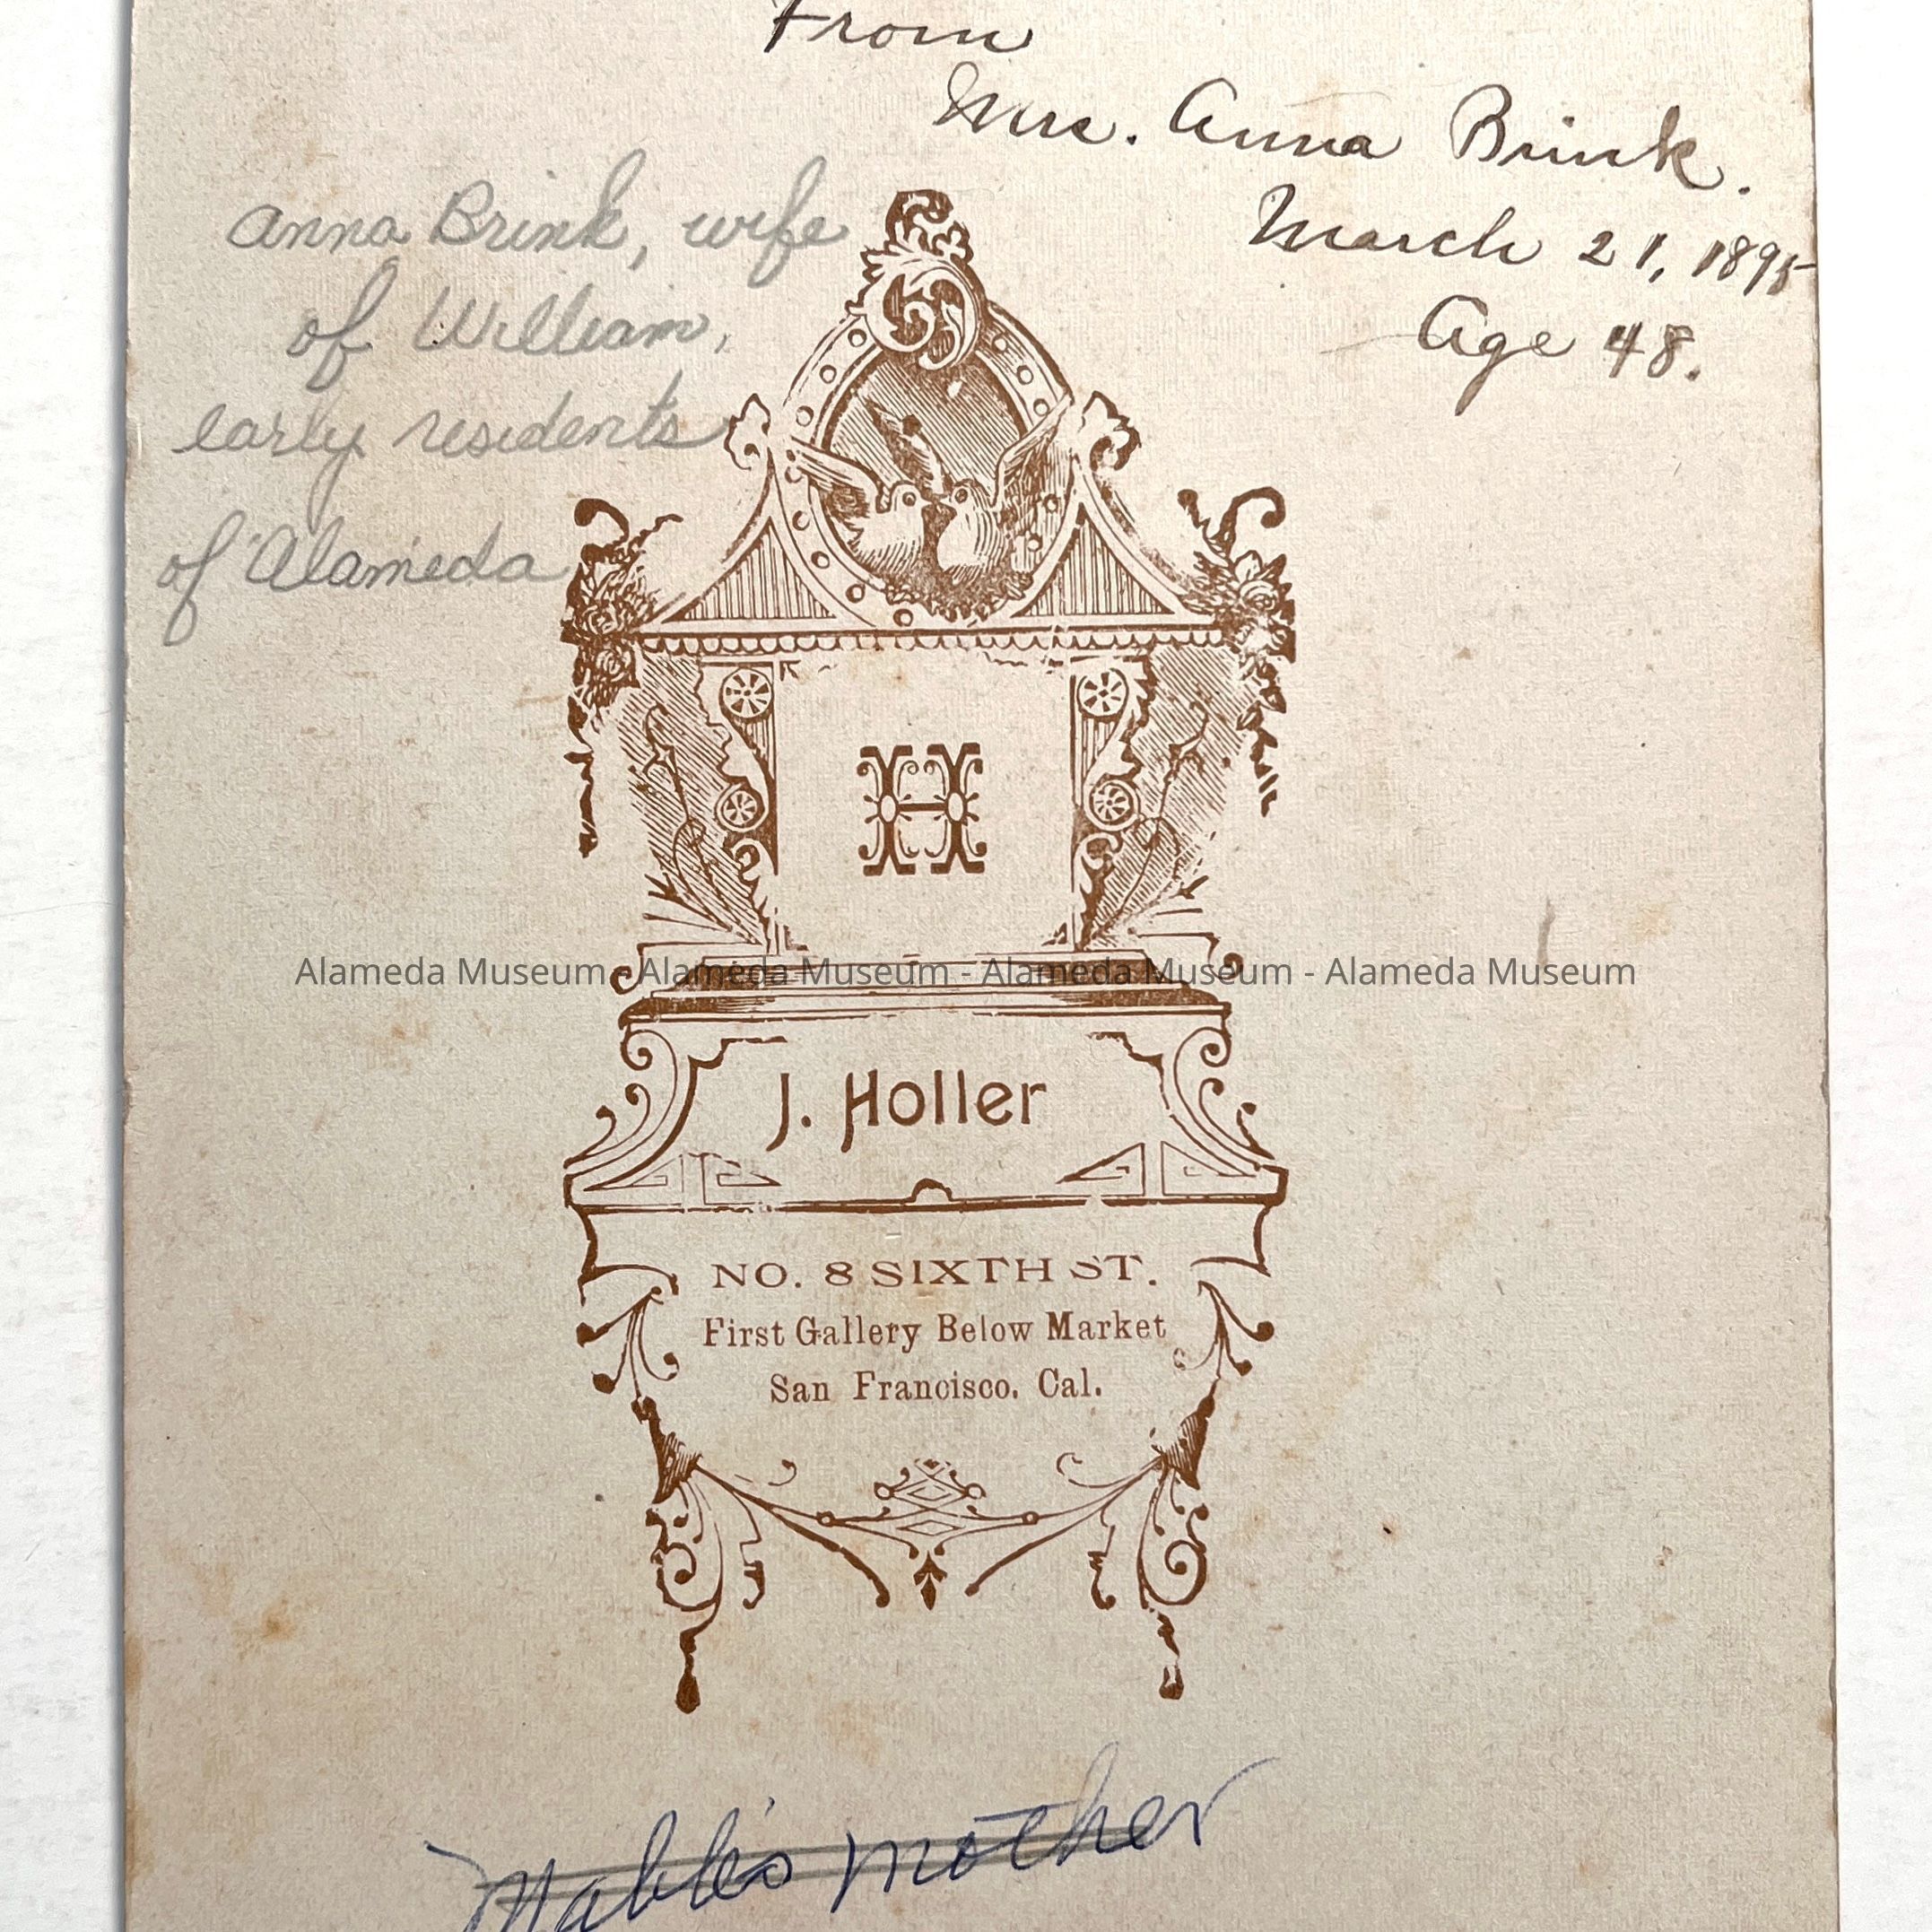 From
Mrs. Anna Brink.
March 21, 1895
Age 48.
Anna Brink, wife
of William,
early residents
of Alameda
H
Alameda Museum - Alameda Museum - Alameda Museum - Alameda Museum
J. Holler
NO. 8 SIXTH ST.
First Gallery Below Market
San Francisco, Cal.
Mable's mother